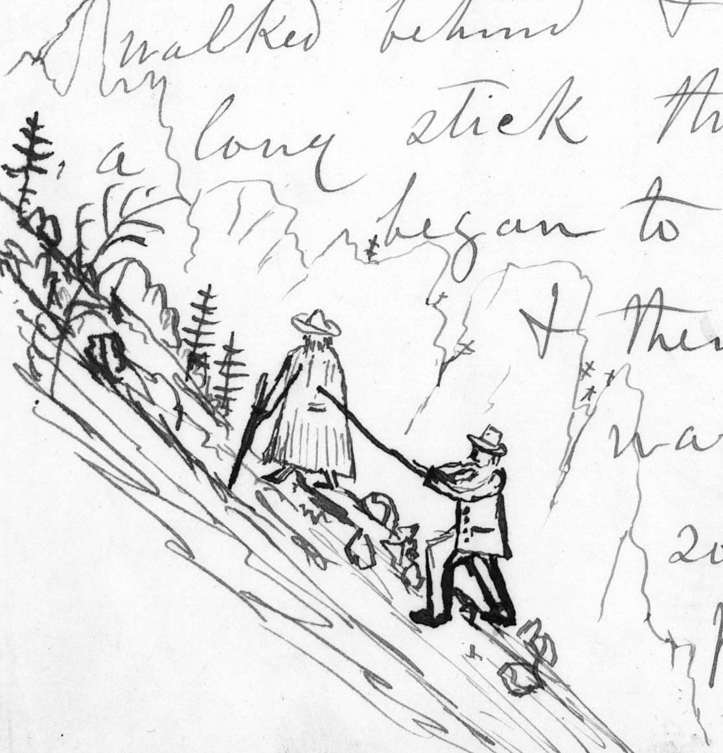 walked behind &
a long stick th
began to
& then
wa
20